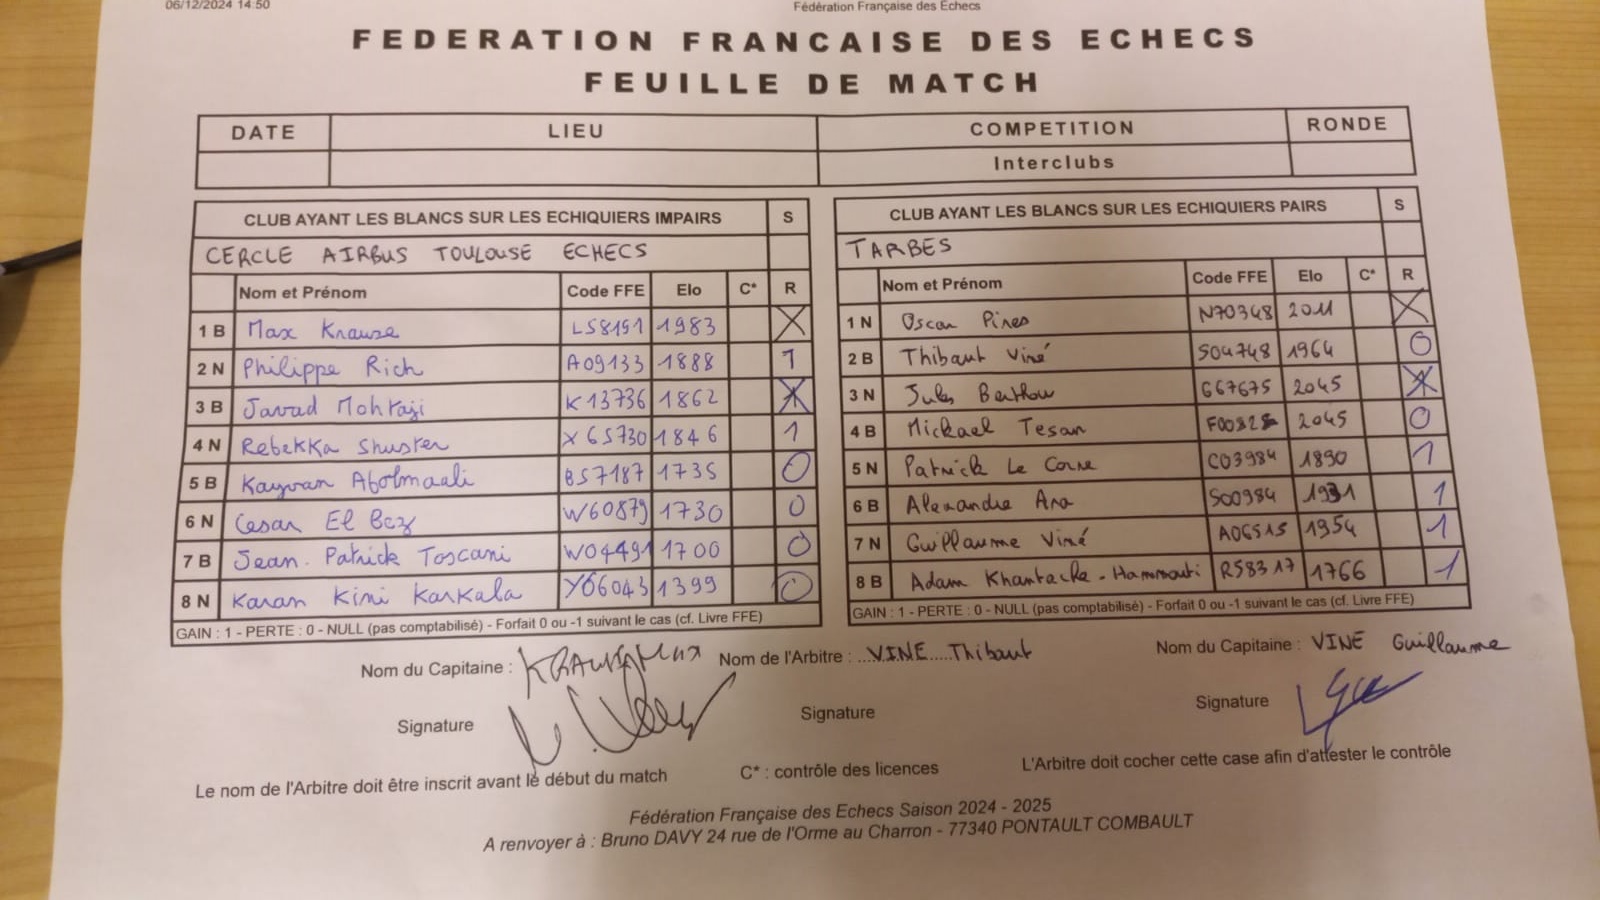 06/12/2024 14:50 Fédération Française des Echecs
FEDERATION FRANCAISE DES ECHECS
FEUILLE DE MATCH
DATE LIEU COMPETITION RONDE
Interclubs
CLUB AYANT LES BLANCS SUR LES ECHIQUIERS IMPAIRS S
CERCLE AIRBUS TOULOUSE ECHECS
Nom et Prénom Code FFE Elo C* R
1 B Max Krause L58191 1983 X
2 N Philippe Rich A09133 1888 1
3 B Javad Mohtaji K13736 1862 X
4 N Rebekka Shuster X65730 1846 1
5 B Kayvan Abolmaali B57187 1735 0
6 N Cesar El Baz W60879 1730 0
7 B Jean-Patrick Toscani W04491 1700 0
8 N Karan Kini Karkala Y06043 1399 0
GAIN : 1 - PERTE : 0 - NULL (pas comptabilisé) - Forfait 0 ou -1 suivant le cas (cf. Livre FFE)
CLUB AYANT LES BLANCS SUR LES ECHIQUIERS PAIRS S
TARBES
Nom et Prénom Code FFE Elo C* R
1 N Oscar Pires N70348 2011 X
2 B Thibaut Viné S04748 1964 0
3 N Jules Berthou G67675 2045 X
4 B Mickael Tesan 2045 0
5 N Patrick Le Corre C03984 1890 1
6 B Alexandre Ara S00984 1931 1
7 N Guillaume Viné A06515 1954 1
8 B Adam Khantache-Hammouti R58317 1766 1
GAIN : 1 - PERTE : 0 - NULL (pas comptabilisé) - Forfait 0 ou -1 suivant le cas (cf. Livre FFE)
Nom du Capitaine : KRAUSE Max Nom de l'Arbitre : VINE Thibaut Nom du Capitaine : VINE Guillaume
Signature Signature Signature
Le nom de l'Arbitre doit être inscrit avant le début du match C* : contrôle des licences L'Arbitre doit cocher cette case afin d'attester le contrôle
Fédération Française des Echecs Saison 2024 - 2025
A renvoyer à : Bruno DAVY 24 rue de l'Orme au Charron - 77340 PONTAULT COMBAULT